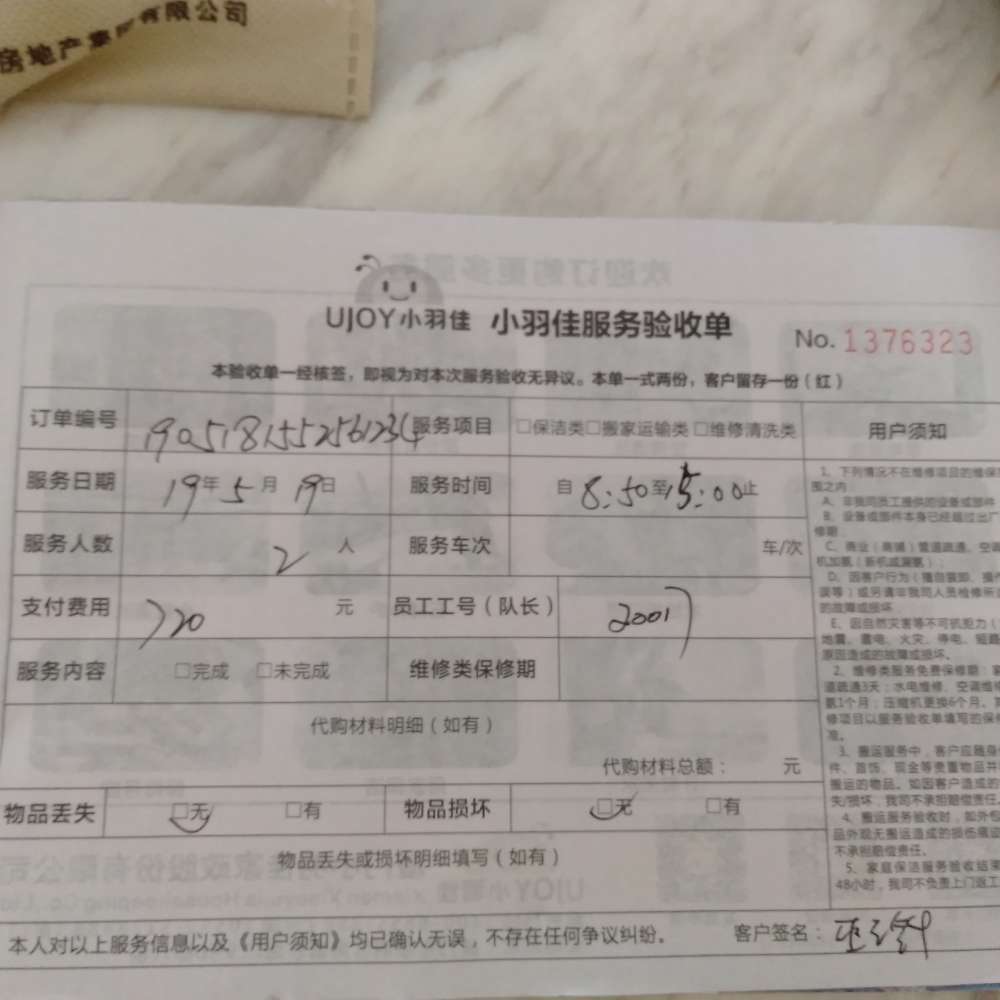 房地产集团有限公司
UJOY小羽佳 小羽佳服务验收单 No. 1376323
本验收单一经核签，即视为对本次服务验收无异议。本单一式两份，客户留存一份（红）
订单编号 1905181552561234 服务项目 □保洁类□搬家运输类□维修清洗类 用户须知
服务日期 19年5月19日 服务时间 自8:50至15:00止
服务人数 2人 服务车次 车/次
支付费用 720元 员工工号（队长） 20017
服务内容 □完成 □未完成 维修类保修期
代购材料明细（如有）
代购材料总额： 元
物品丢失 □无 □有 物品损坏 □无 □有
物品丢失或损坏明细填写（如有）
本人对以上服务信息以及《用户须知》均已确认无误，不存在任何争议纠纷。 客户签名：
1、下列情况不在维修项目的维保
围之内：
A、非我司员工提供的设备或部件
B、设备或部件本身已经超过出厂
修期；
C、商业（商铺）管道疏通、空调
机加氨（新机或漏氨）；
D、因客户行为（擅自装卸、操作
误等）或另请非我司人员检修所
的故障或损坏
E、因自然灾害等不可抗力（
地震、雷电、火灾、停电、短路
原因造成的故障或损坏。
2、维修类服务免费保修期：
道疏通3天；水电维修、空调维修
氨1个月；压缩机更换6个月。
修项目以服务验收单填写的保修
准。
3、搬运服务中，客户应随身
件、首饰、现金等贵重物品并
搬运的物品。如因客户造成的
失/损坏，我司不承担赔偿责任
4、搬运服务验收时，如外包
品外观无搬运造成的损伤痕迹
不承担赔偿责任。
5、家庭保洁服务验收结束
48小时，我司不负责上门返工